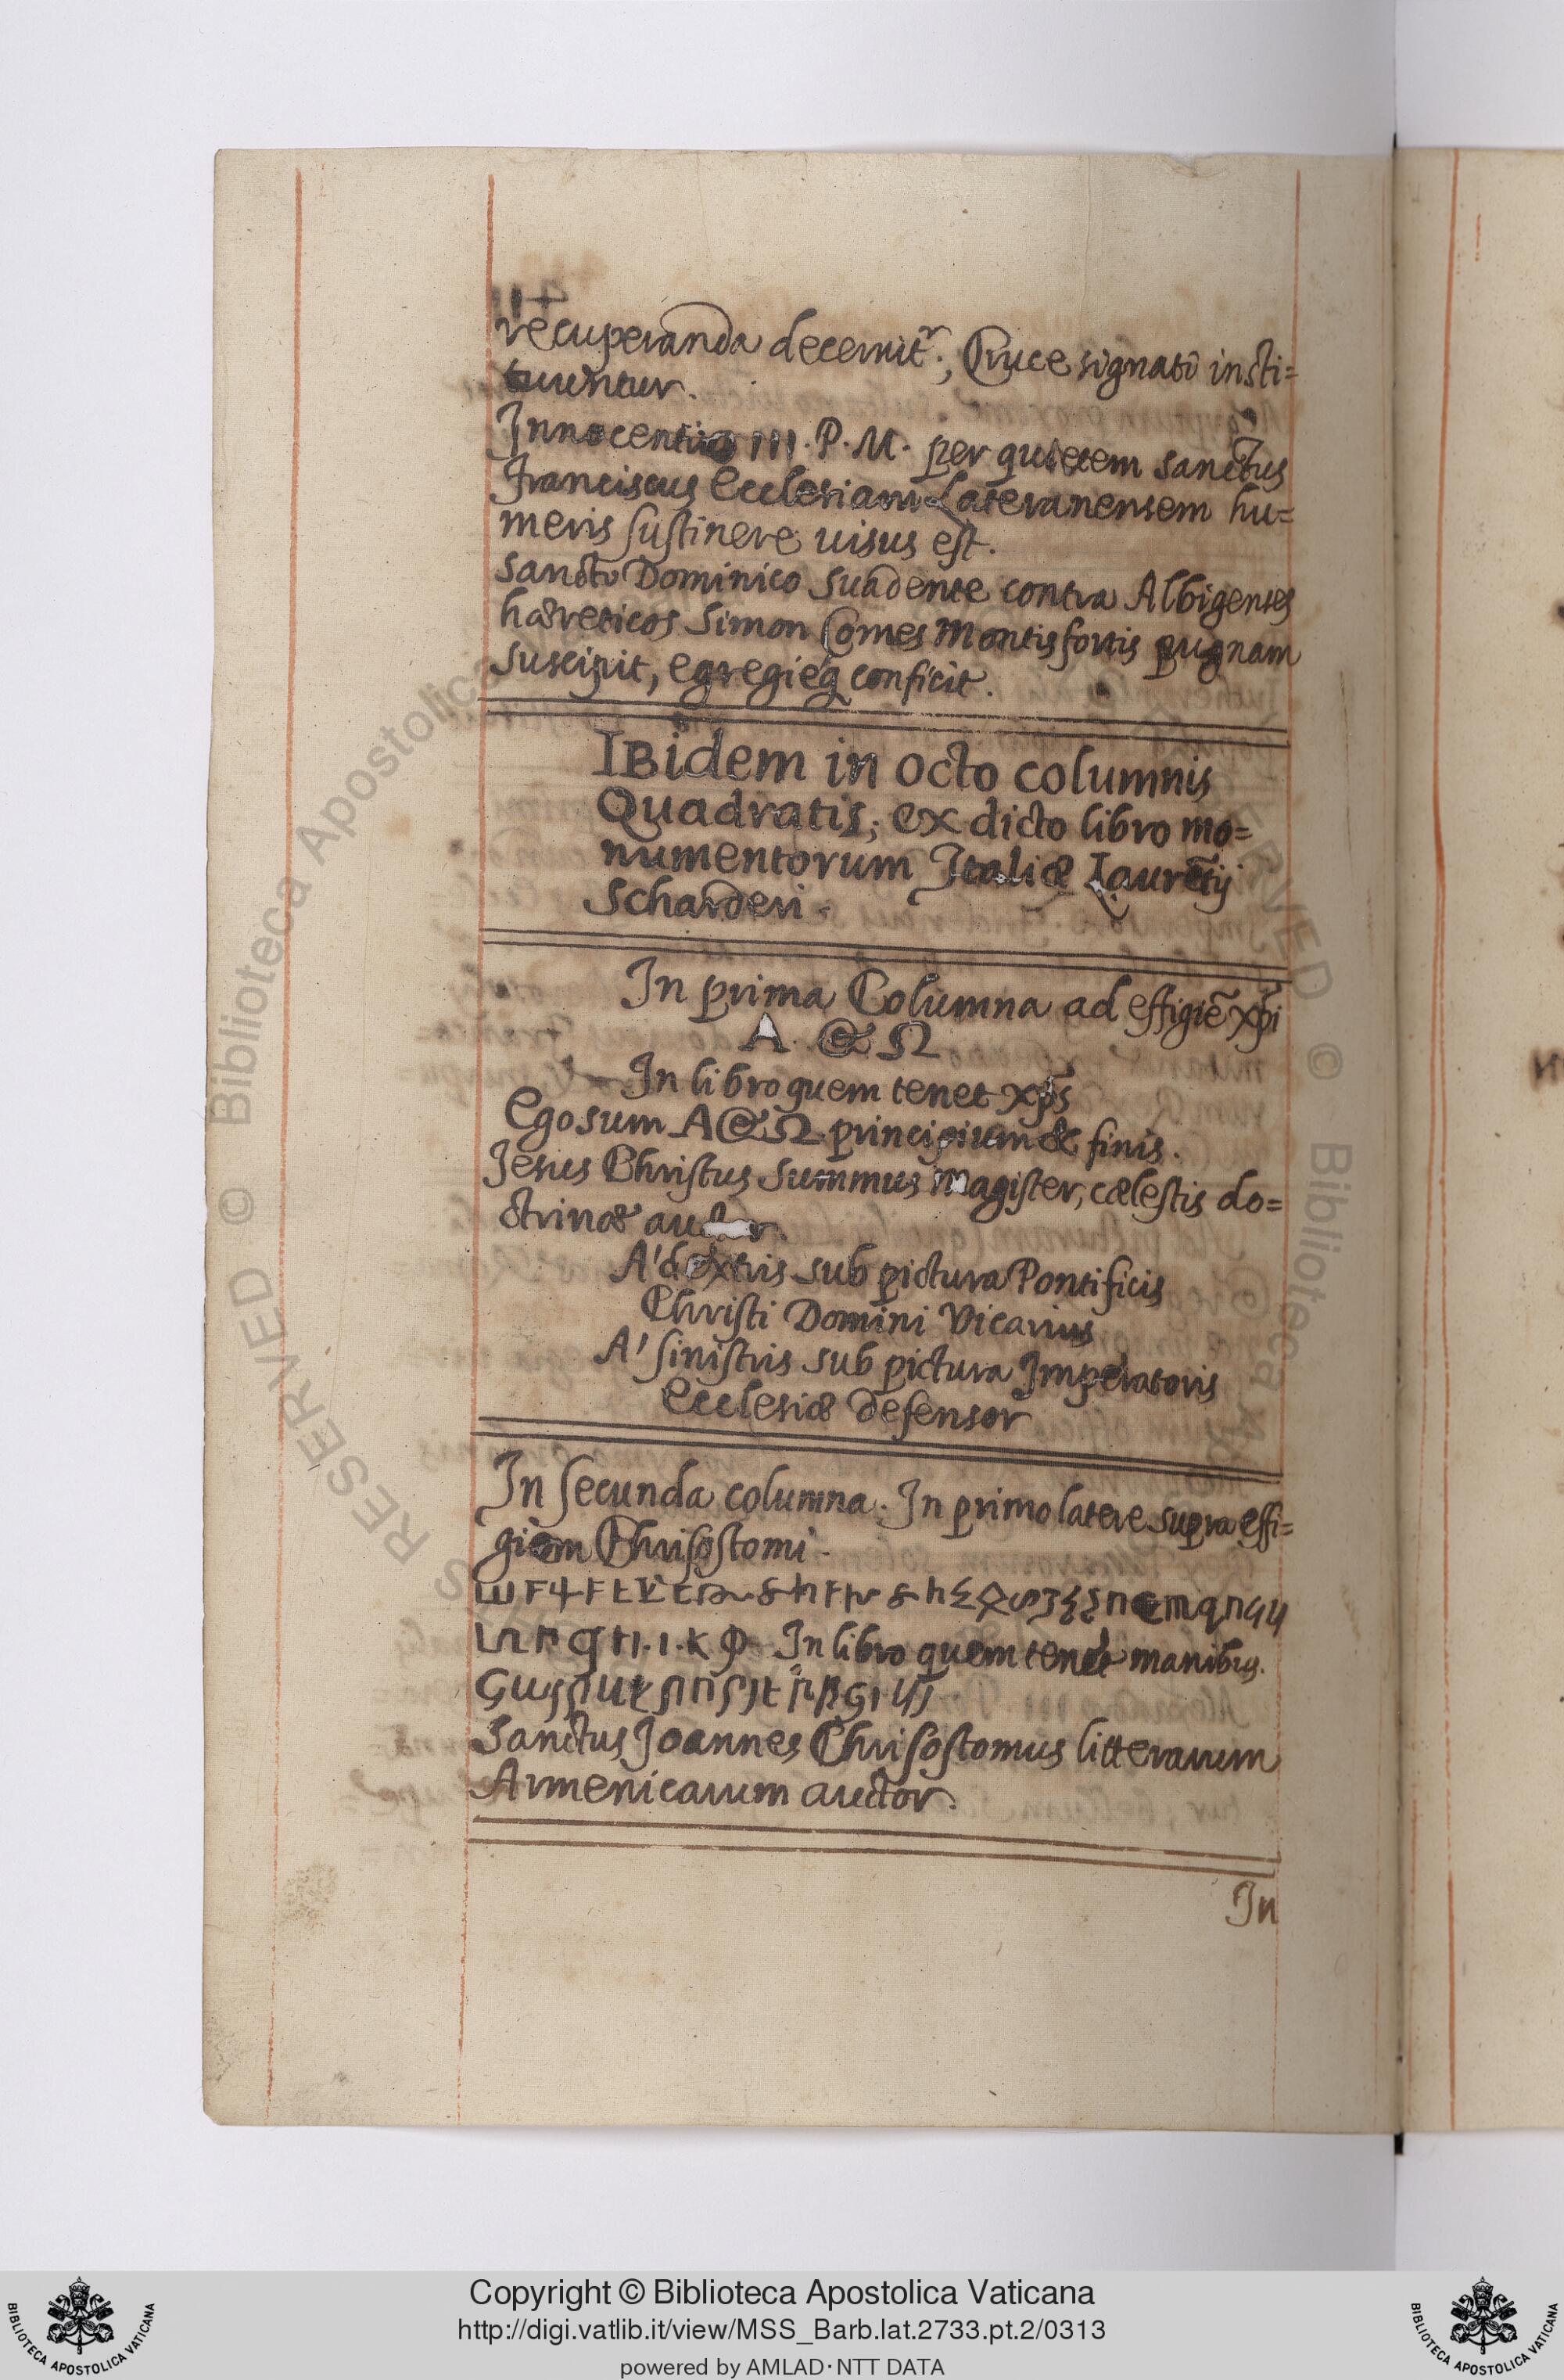 recuperanda decernitr; Cruce signati insti=
tuuntur.
Innocentio III. P. M. per quietem sanctus
Franciscus Ecclesiam Lateranensem hu=
meris sustinere uisus est.
Sancto Dominico Suadente contra Albigenses
hæreticos Simon Comes Montisfortis pugnam
suscipit, egregieq; conficit.
IBidem in octo columnis
Quadratis; ex dicto libro mo=
numentorum Italiæ Laurētij
Scharderi.
In prima Columna ad effigiē xp̄i
A & Ω
In libro quem tenet xp̄s
Ego sum A & Ω principium & finis.
Jesus Christus Summus Magister, cælestis do=
ctrinæ
A' dextris sub pictura Pontificis
Christi Domini Vicarius
A' sinistris sub pictura Imperatoris
Ecclesiæ defensor
In secunda columna. In primo latere supra effi=
giem Chrisostomi.
In libro quem tenet manibus.
Sanctus Joannes Chrisostomus litterarum
Armenicarum auctor.
In
RESERVED © Biblioteca Apostolica
Copyright © Biblioteca Apostolica Vaticana
http://digi.vatlib.it/view/MSS_Barb.lat.2733.pt.2/0313
powered by AMLAD·NTT DATA
BIBLIOTECA APOSTOLICA VATICANA
BIBLIOTECA APOSTOLICA VATICANA